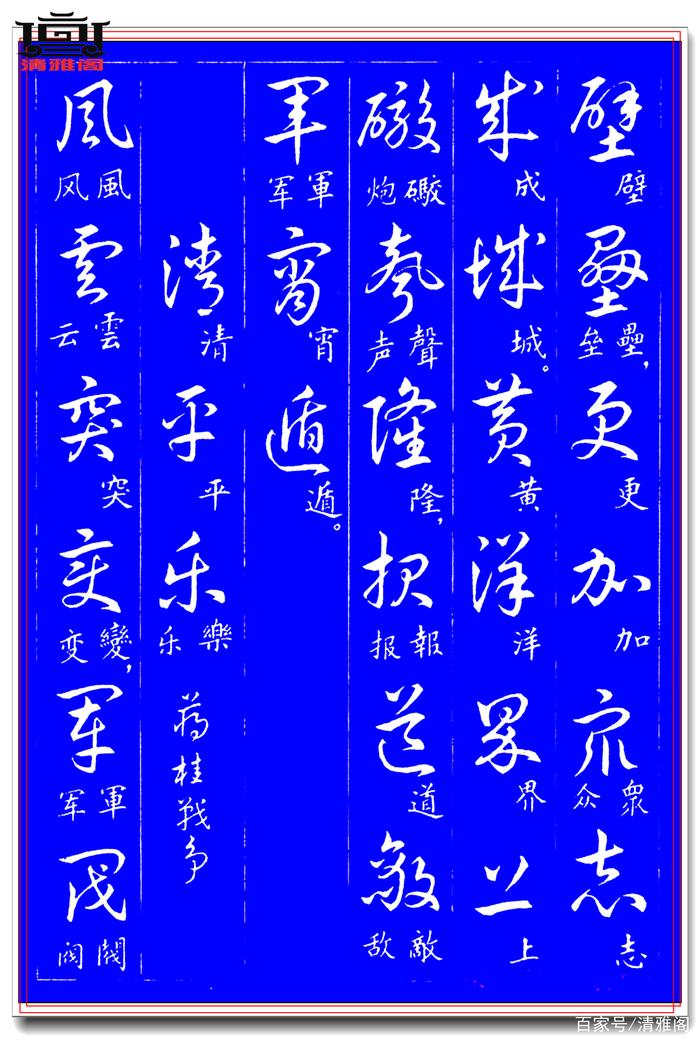 清雅阁
壁壁壘壘垒，更更加加眾眾众志志
成成城城。黄黄洋洋界界上上
礮礮炮聲聲声隆隆，報報报道道敵敵敌
軍軍军宵宵遁遁。
清清平平乐樂乐蒋桂戰争
風風风雲雲云突突變變变，軍軍军閥閥阀
百家号/清雅阁